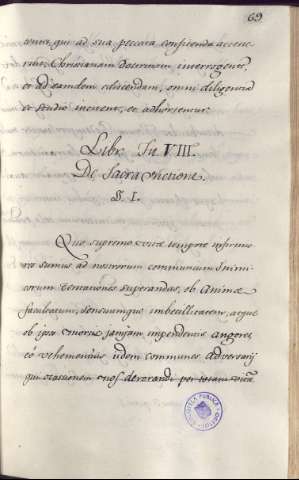 69
tentes, qui ad sua peccata confitenda accene
rint, Christianam Doctrinam interrogent,
et ad eamdem ediscendam, omni diligentia
et studio incitent, et adhortentur.
Libr. In VIII.
De Sacra Unctione.
§. I.
Quo supremo vitæ tempore infirmio
res sumus ad nostrorum communium Inimi
corum tentationes superandas, ob Animæ
facultatum, sensuumque imbecillitatem, atque
ob ipsæ mortis jamjam impendentis angores,
eò vehementius iidem communes Adversarij
qui occasionem nos devorandi per totam vitæ
BIBLIOTECA PUBLICA